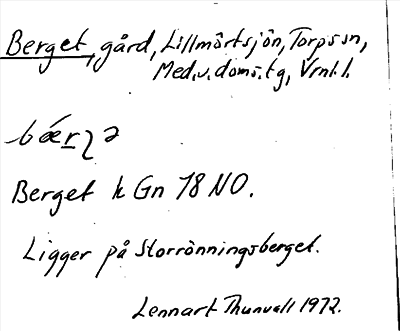 Berget, gård, Lillmörtsjön, Torps sn,
Med.v.doms.tg, Vrnl.l.
Berget k Gn 18 NO.
Ligger på Storrönningsberget.
Lennart Thunvall 1972.